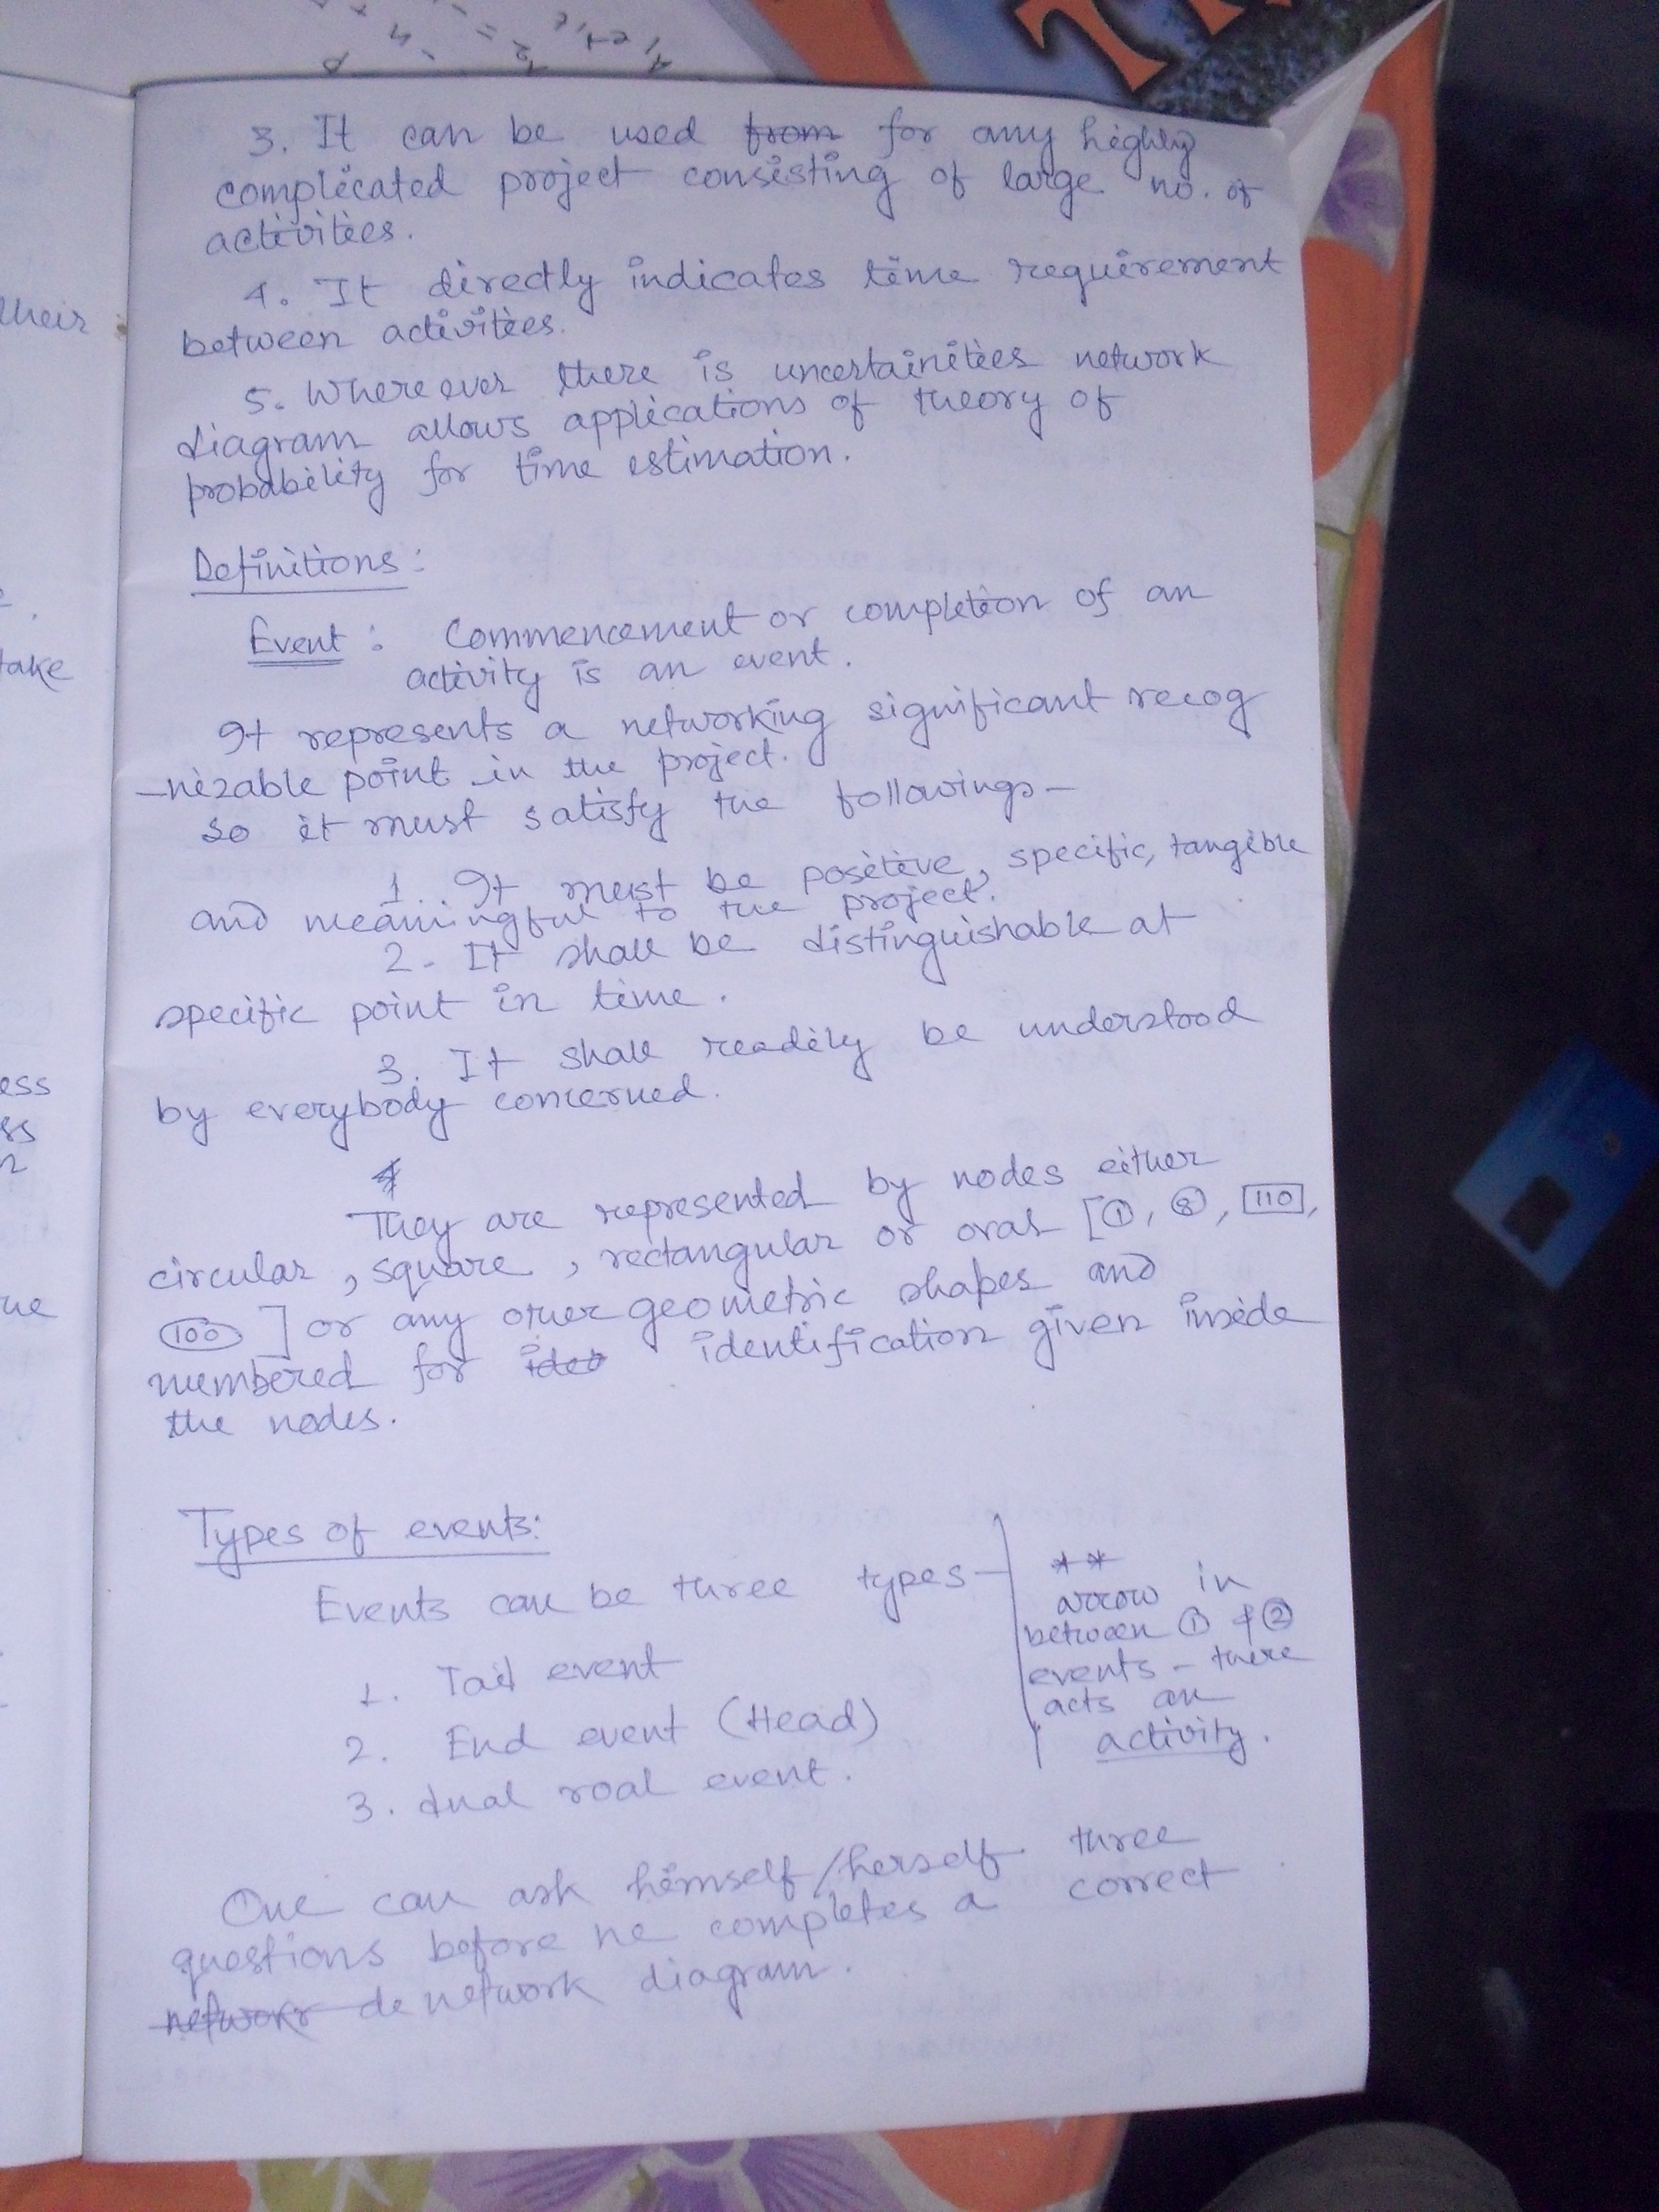 3. It can be used from for any highly
complicated project consisting of large no. of
activities.
4. It directly indicates time requirement
between activities.
5. Where ever there is uncertainities network
diagram allows applications of theory of
probability for time estimation.
Definitions:
Event: Commencement or completion of an
activity is an event.
It represents a networking significant recog
-nizable point in the project.
so it must satisfy the followings-
1. It must be positive, specific, tangible
and meaningful to the project.
2. It shall be distinguishable at
specific point in time.
3. It shall readily be understood
by everybody concerned.
They are represented by nodes either
circular, square, rectangular or oval [①, ⑧, 110,
100] or any other geometric shapes and
numbered for identification given inside
the nodes.
Types of events:
Events can be three types-
1. Tail event
2. End event (Head)
3. dual roal event.
**
arrow in
between ① & ②
events - there
acts an
activity.
One can ask himself/herself three
questions before he completes a correct
network de network diagram.
their
take
ess